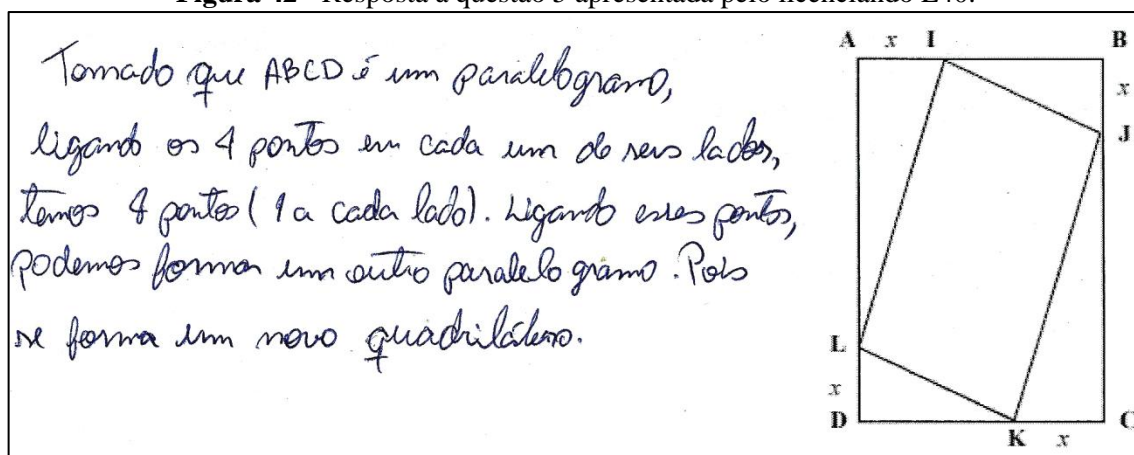 Figura 42 - Resposta à questão 5 apresentada pelo licenciando L40.
Tomado que ABCD é um paralelogramo,
ligando os 4 pontos em cada um de seus lados,
temos 4 pontos (1 a cada lado). Ligando esses pontos,
podemos formar um outro paralelogramo. Pois
se forma um novo quadrilátero.
A x I B
x
J
L
x
D C
K x